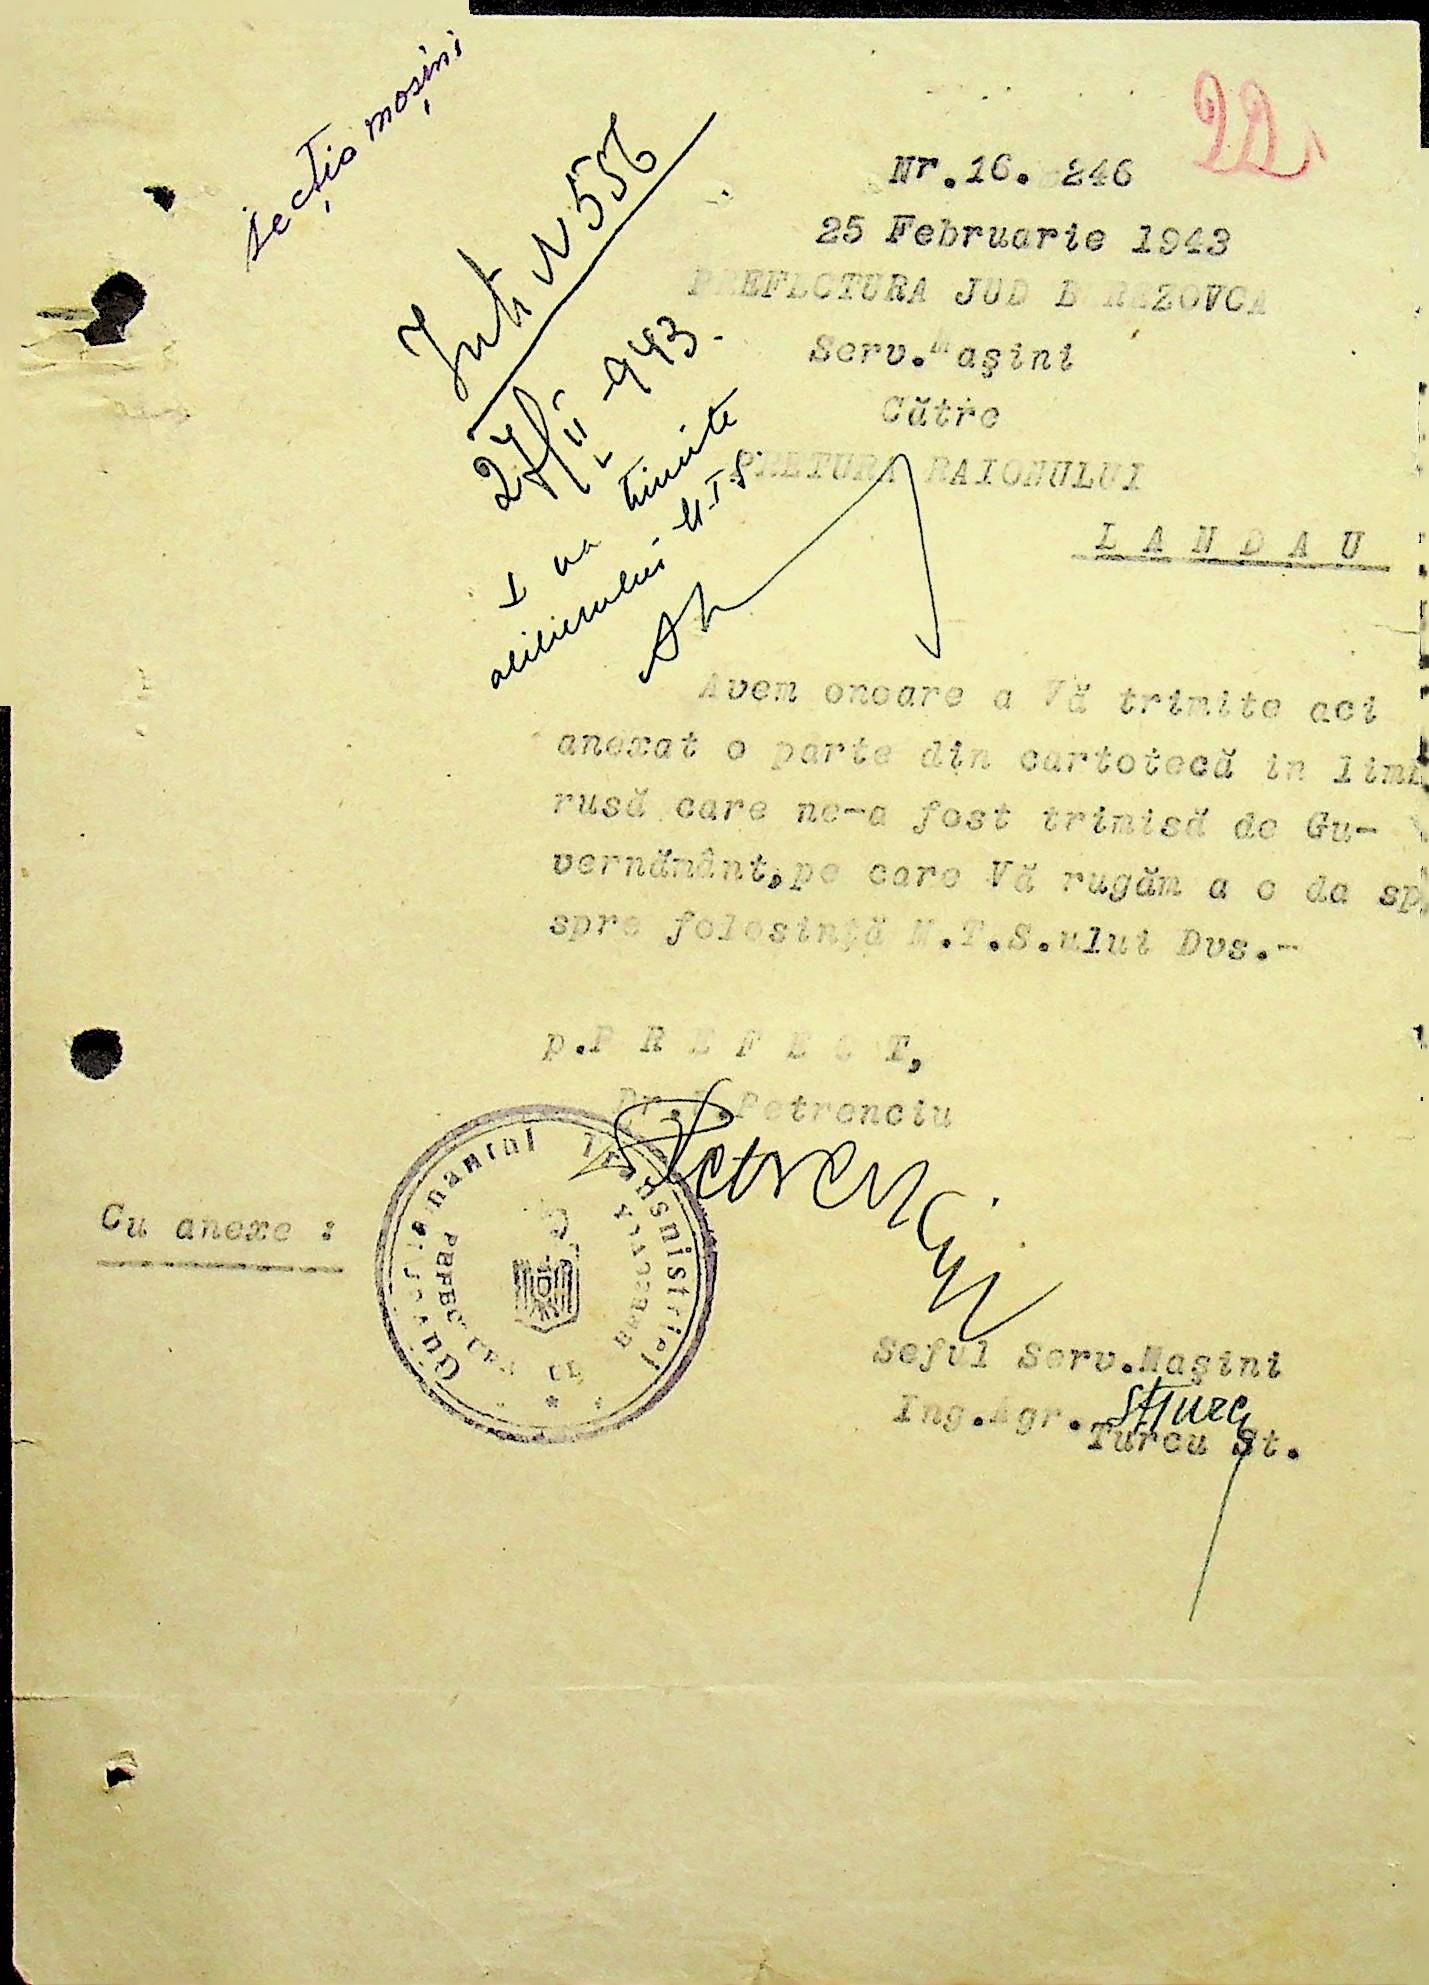 secția mașini
22
Nr.16. 246
25 Februarie 1943
PREFECTURA JUD BEREZOVCA
Serv.Mașini
Către
PRETURA RAIONULUI
L A N D A U
Intr N 556
27/II 943.
va trimite
atelierului M.T.S
Avem onoare a Vă trimite aci
anexat o parte din cartotecă in limb
rusă care ne-a fost trimisă de Gu-
vernământ,pe care Vă rugăm a o da sp
spre folosință M.T.S.ului Dvs.-
p.P R E F E C T,
Dr. Petrenciu
Petrenciu
Cu anexe :
Guvernamantul Transnistriei
Seful Serv.Mașini
Ing.Agr.
StTurcu
Turcu St.